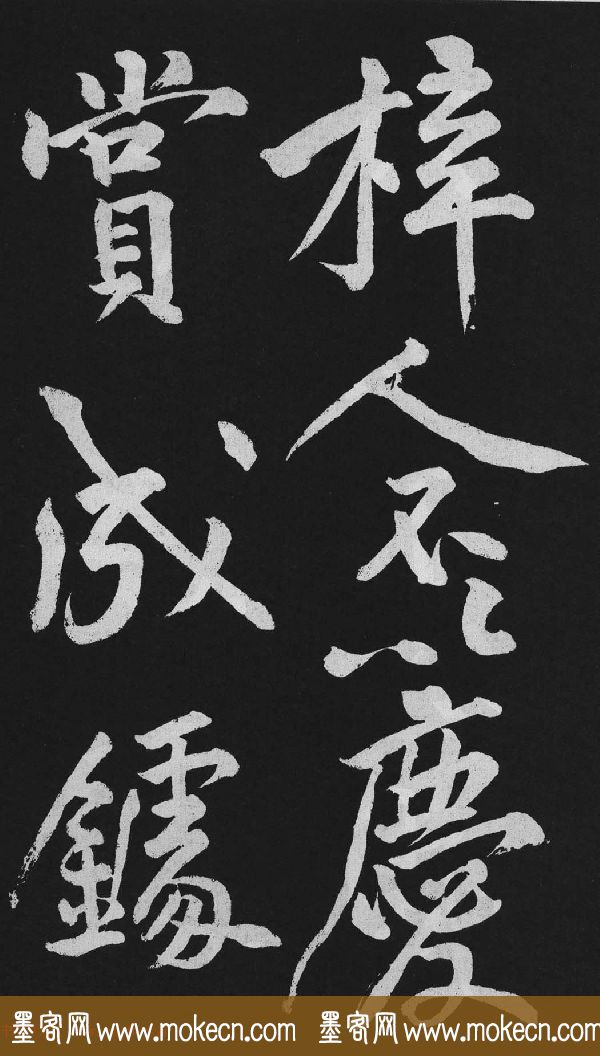 梓人不以慶
賞成鐻
墨客网 www.mokecn.com 墨客网 www.mokecn.com